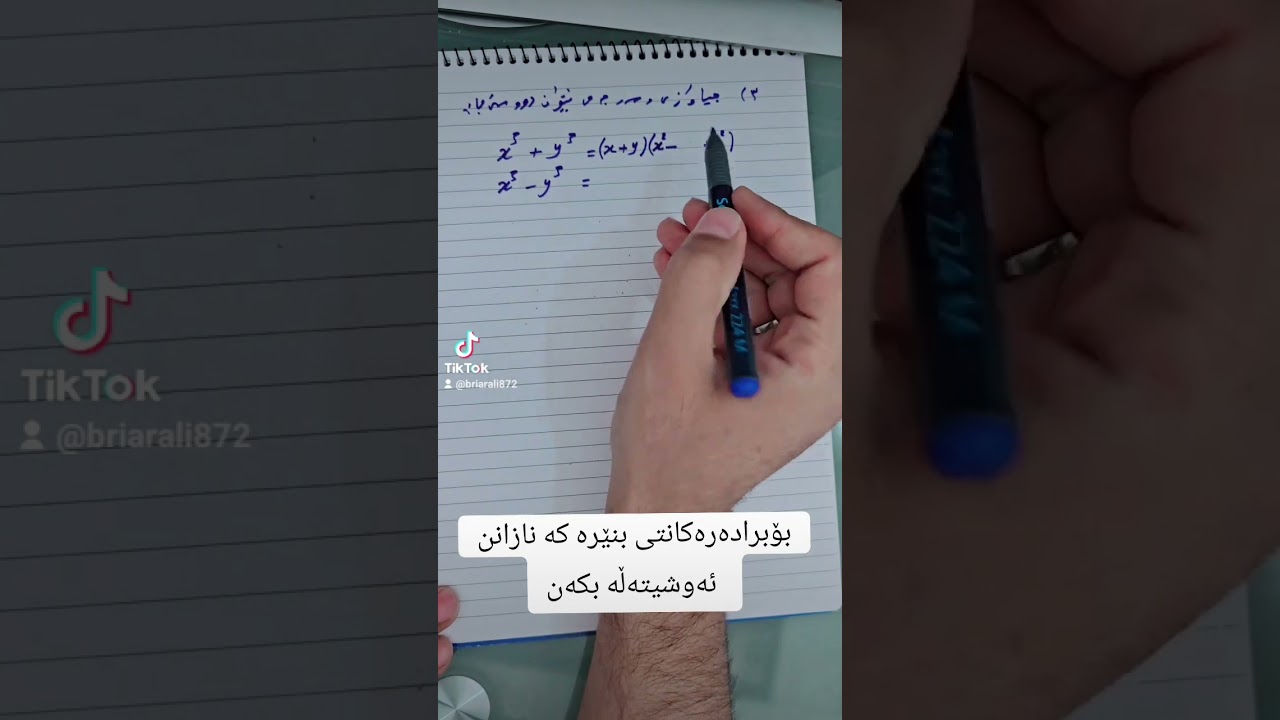 ٣) جیاوازی و سەرجەی نێوان دوو سێجا:
x³ + y³ = (x+y)(x² - ²)
x³ - y³ =
TikTok
@briarali872
TikTok
@briarali872
بۆبرادەرەکانتی بنێرە کە نازانن
ئەوشیتەڵە بکەن